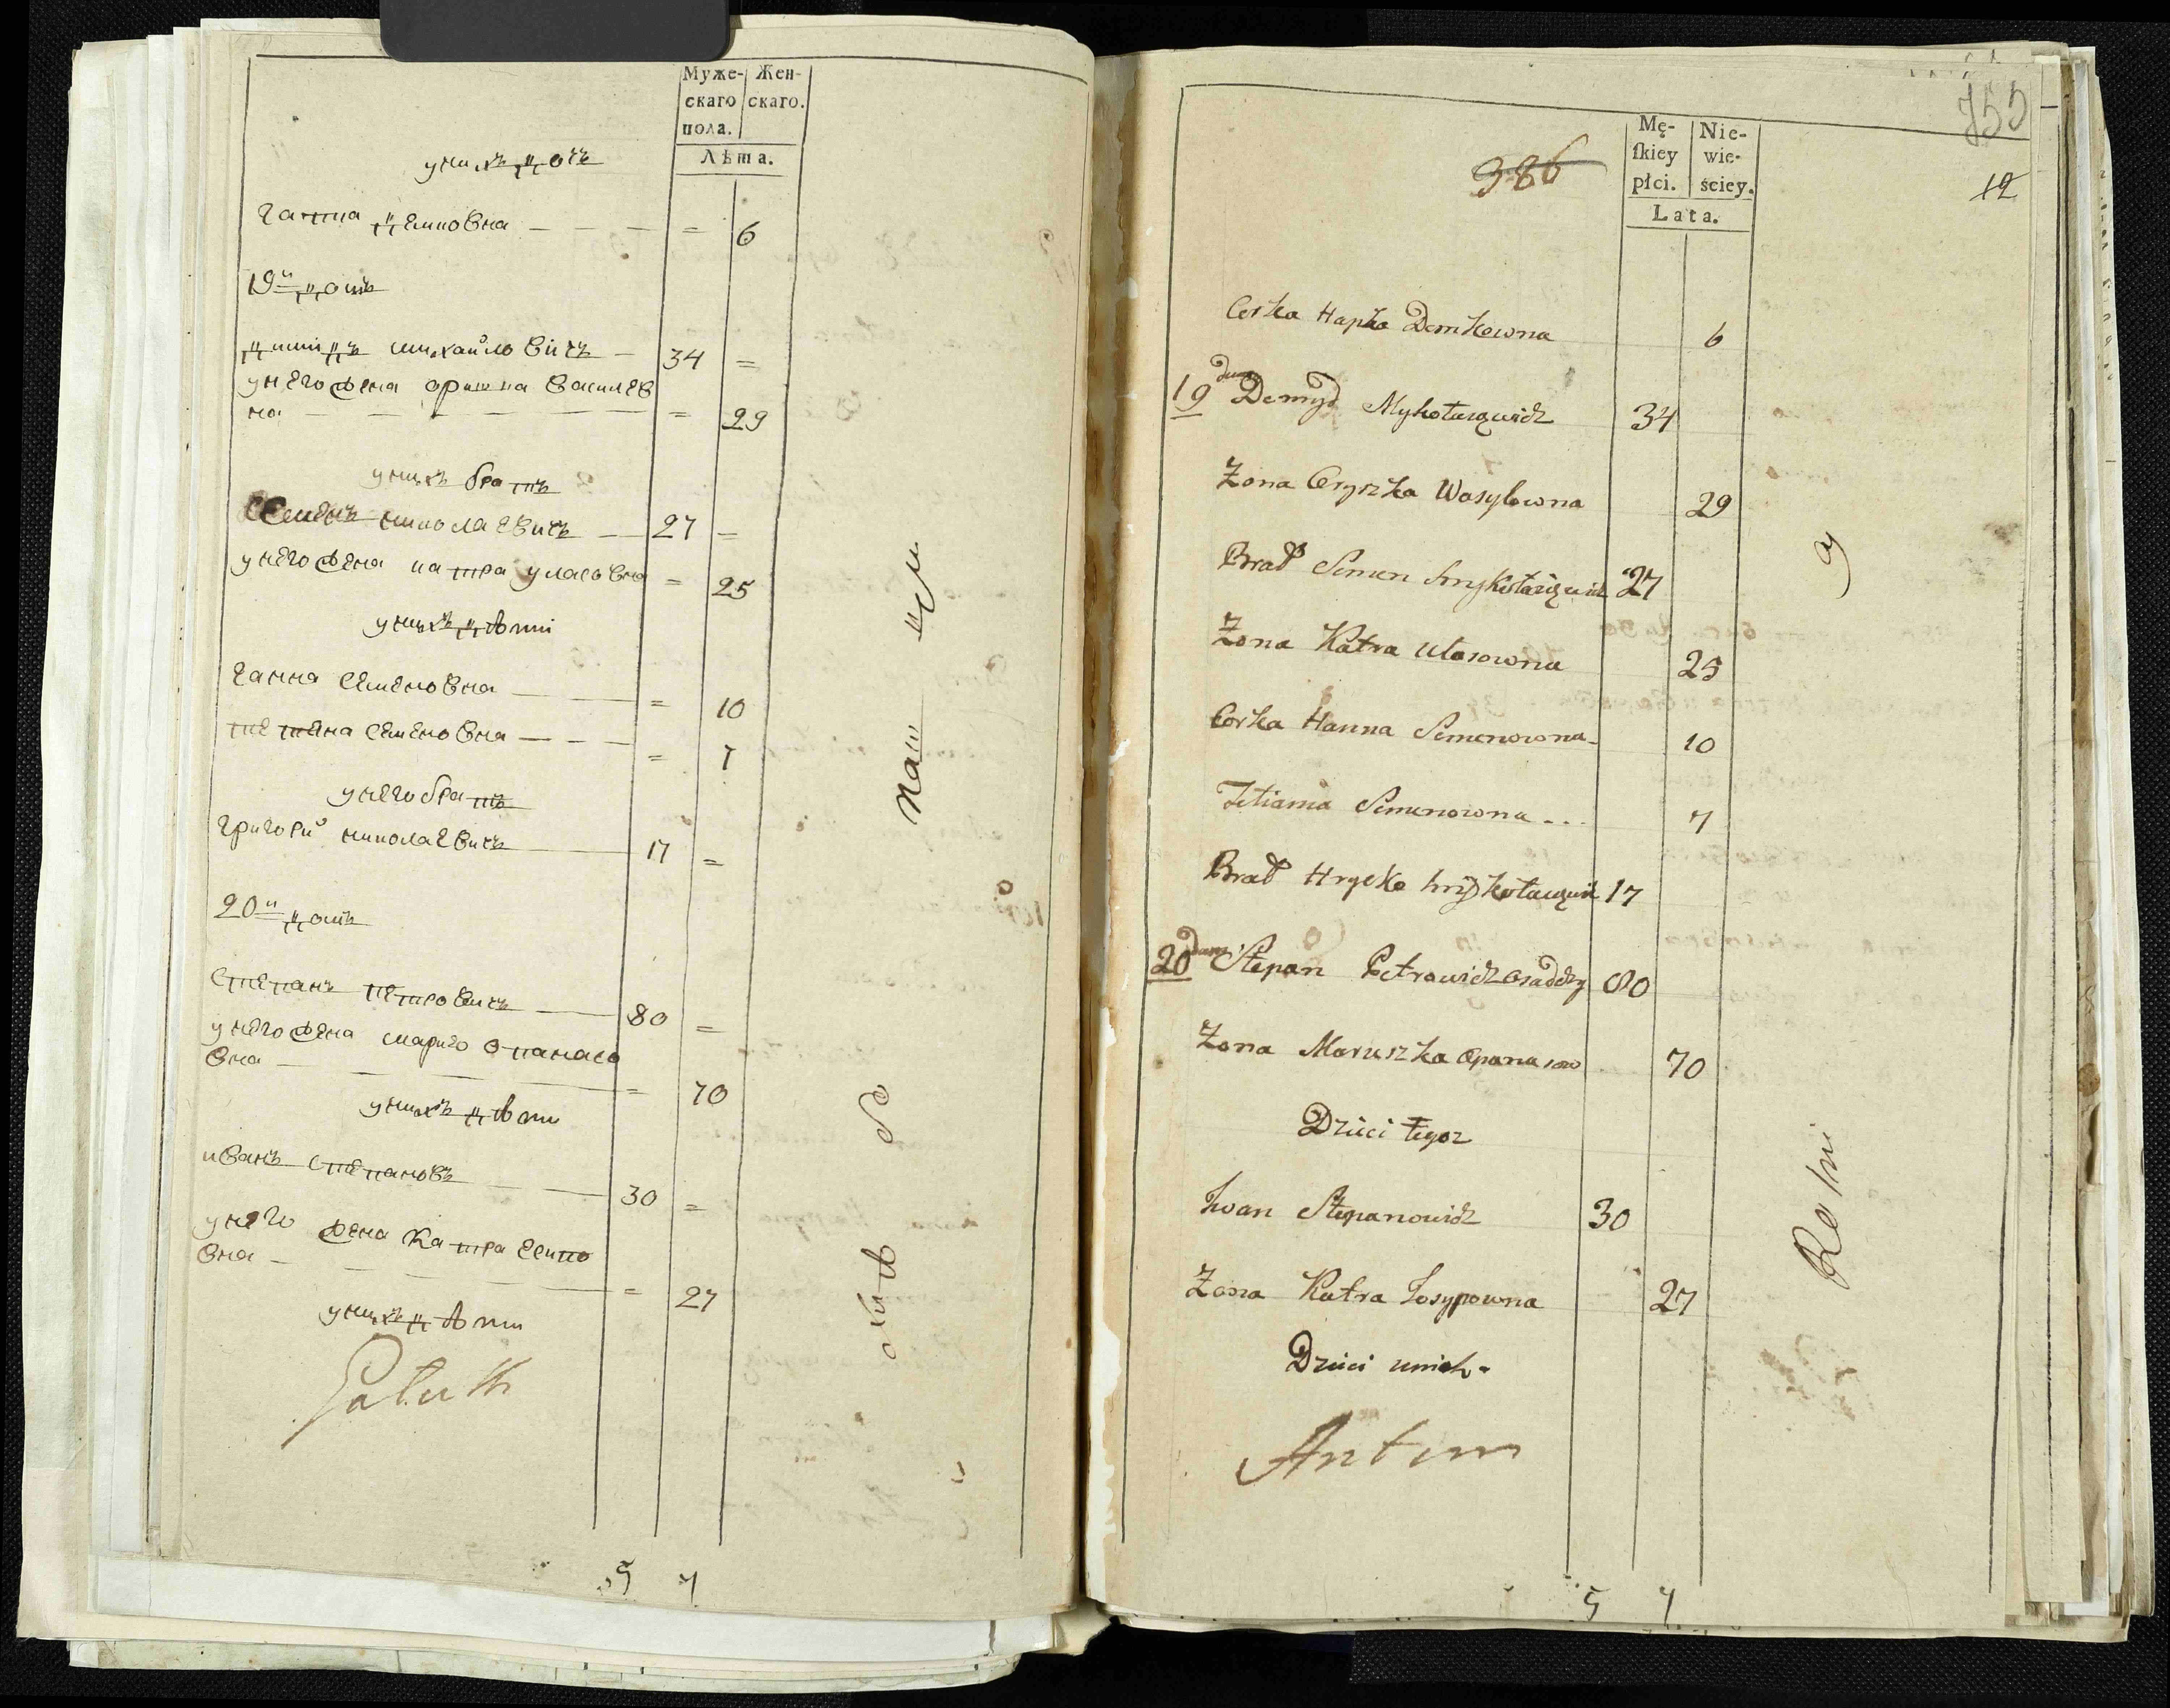 Муже-
скаго
пола.
Жен-
скаго.
Лѣта.
у них дочъ
Ганна Демковна — — — = 6
19й домъ
Демидъ михайловичъ — 34 =
у него жена оришка василев
на — — — — = 29
у них братъ
Семенъ николаевичъ — 27 =
у него жена катра уласовна = 25
у нихъ дѣти
Ганна Семеновна — — = 10
тетяна Семеновна — — — = 7
у него братъ
Григорий николаевичъ — 17 =
20й домъ
Степанъ Петровичъ — 80 =
у него жена марија опанасо
вна — — — = 70
у нихъ дѣти
иванъ Степановъ — — 30 =
у него жена Катра Есипо
вна — — — = 27
у нихъ дѣти
5 7
755
12
386
Mę-
skiey
płci.
Nie-
wie-
ściey.
Lata.
Corka Hapka Demkowna 6
19 dum Demyd Mykołaiowicz 34
Zona Oryszka Wasylowna 29
Brat Semen Mykołaiowicz 27
Zona Katra Ułasowna 25
Corka Hanna Semenowna 10
Tetianna Semenowna 7
Brat Hrycko Mykołaiowicz 17
20 dum Stepan Petrowicz osadczy 80
Zona Maruszka Opanasow 70
Dzieci tegoz
Iwan Stepanowicz 30
Zona Katra Josypowna 27
Dzieci unich
Antim
5 7